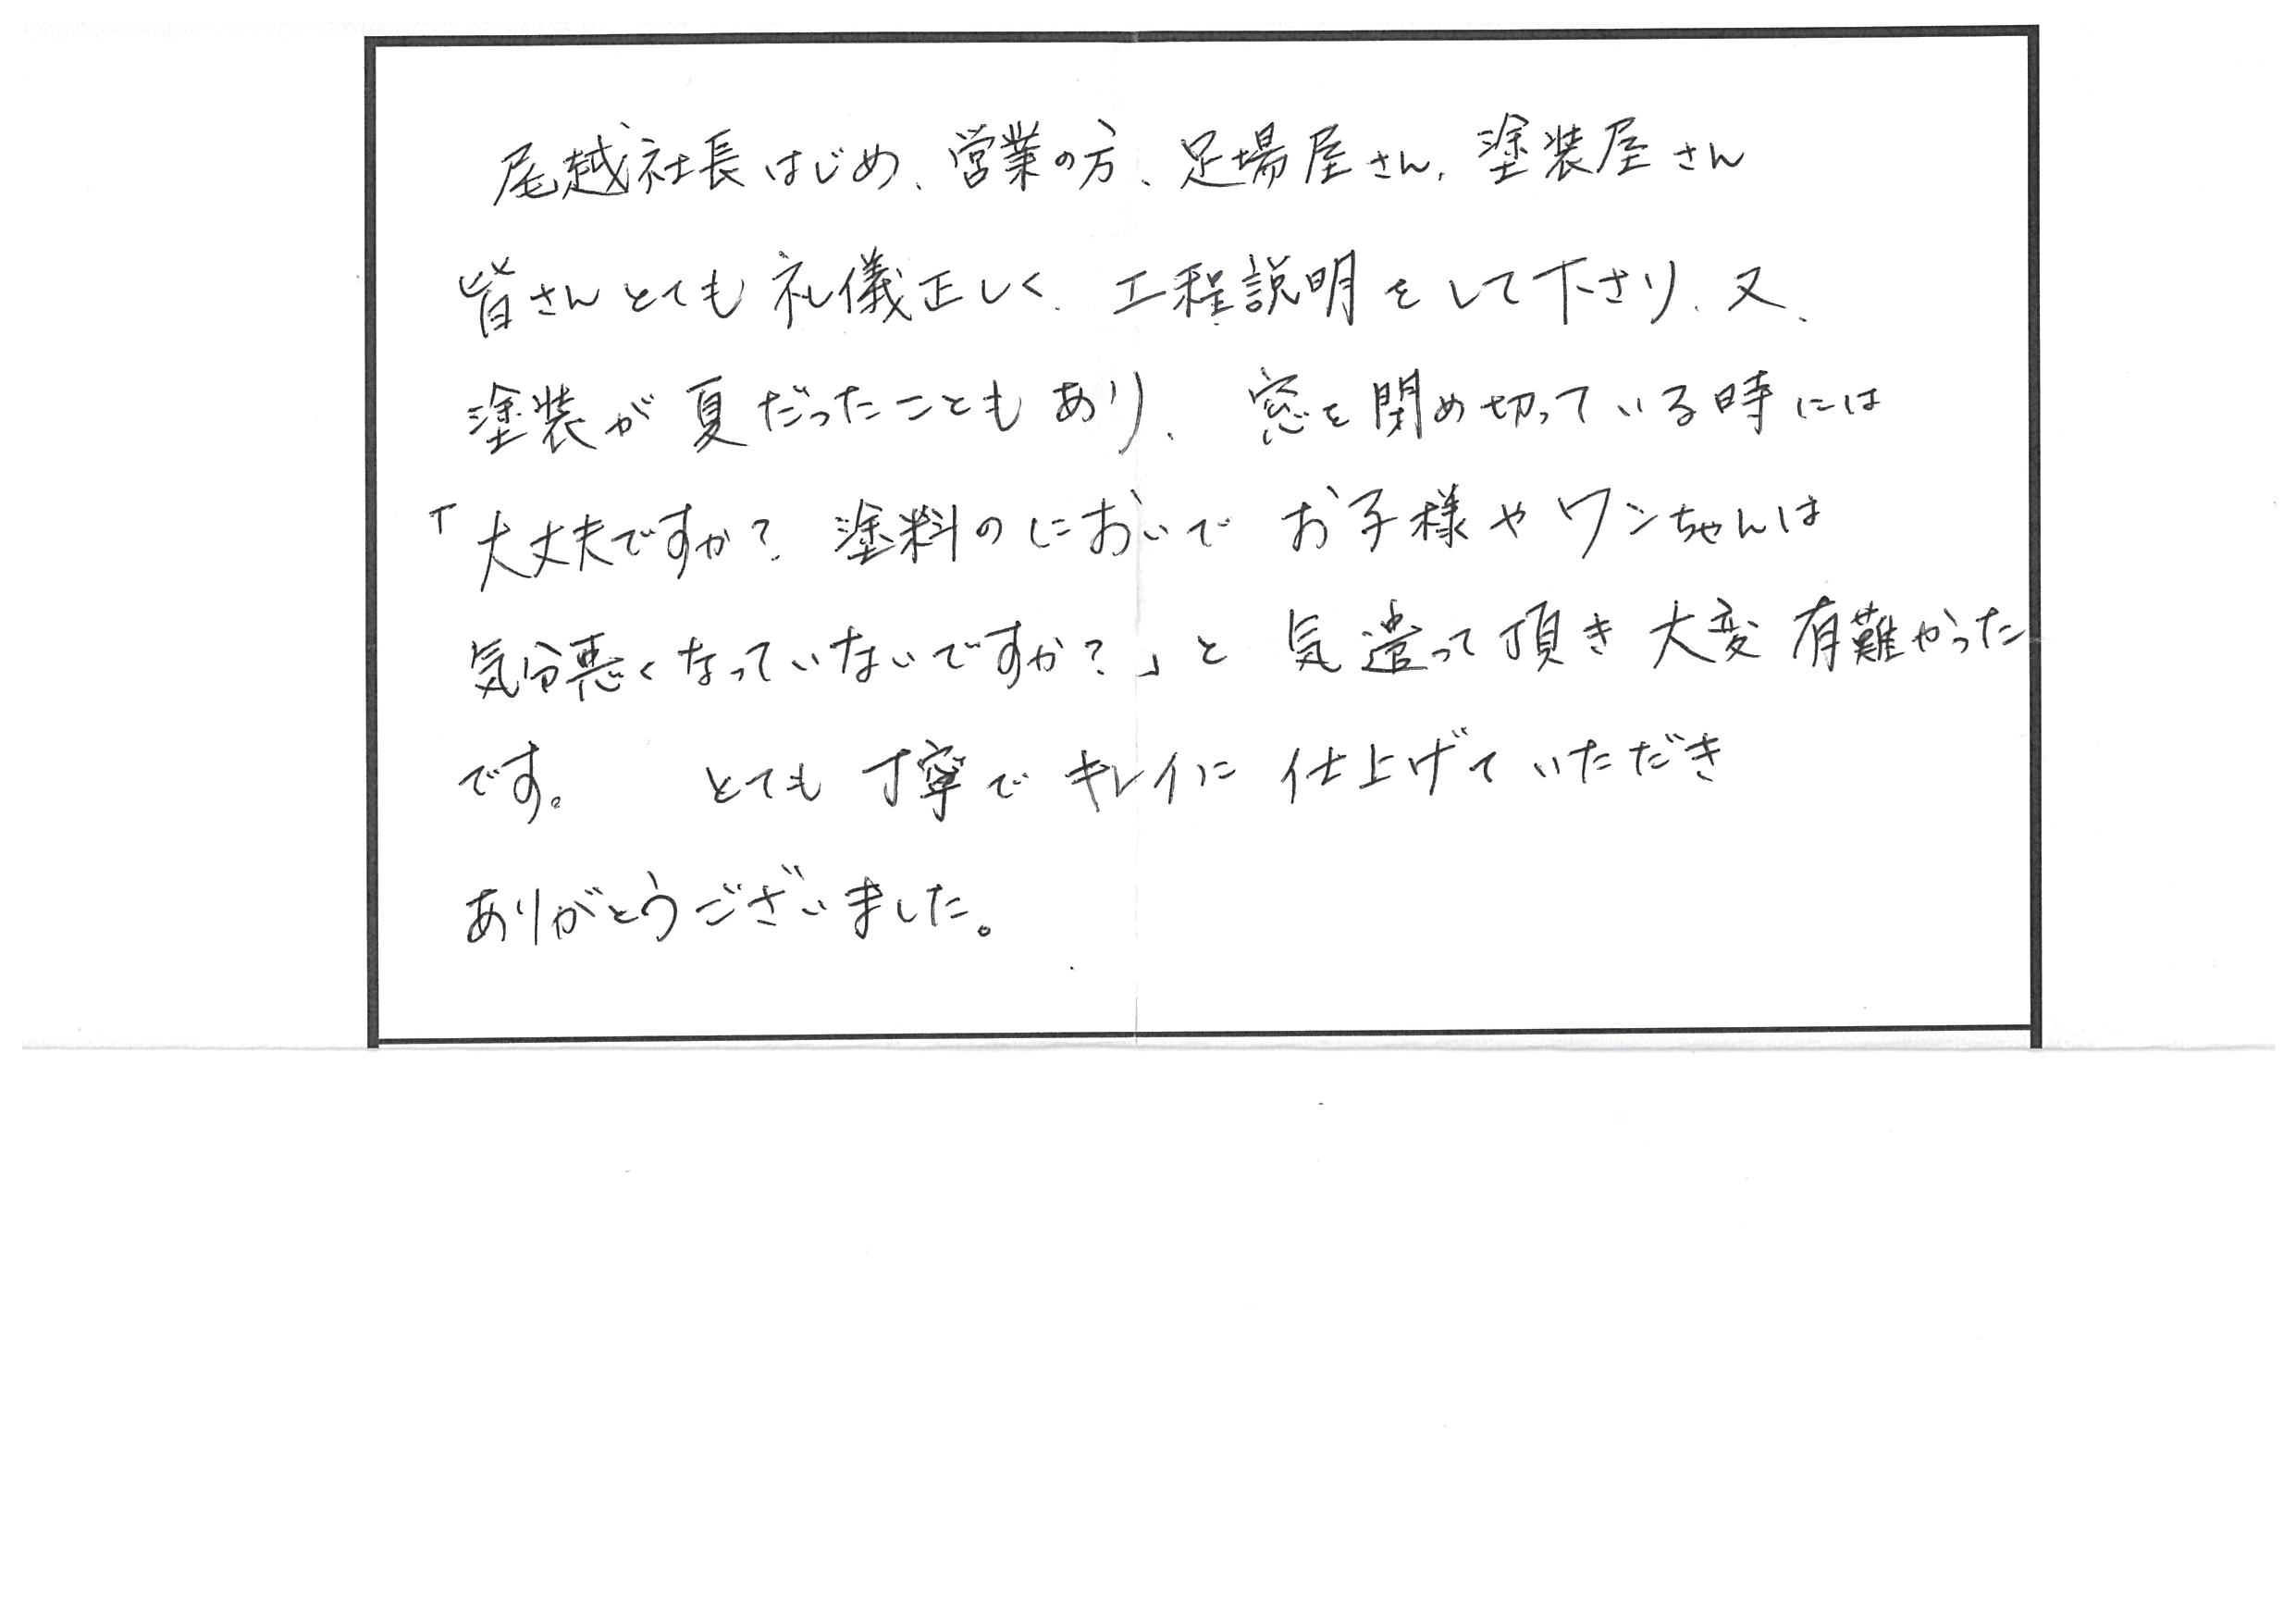 尾越社長はじめ、営業の方、足場屋さん、塗装屋さん
皆さんとても礼儀正しく、工程説明をして下さり、又、
塗装が夏だったこともあり、窓を閉め切っている時には
「大丈夫ですか？塗料のにおいでお子様やワンちゃんは
気分悪くなっていないですか？」と気遣って頂き大変有難かった
です。　とても丁寧でキレイに仕上げていただき
ありがとうございました。